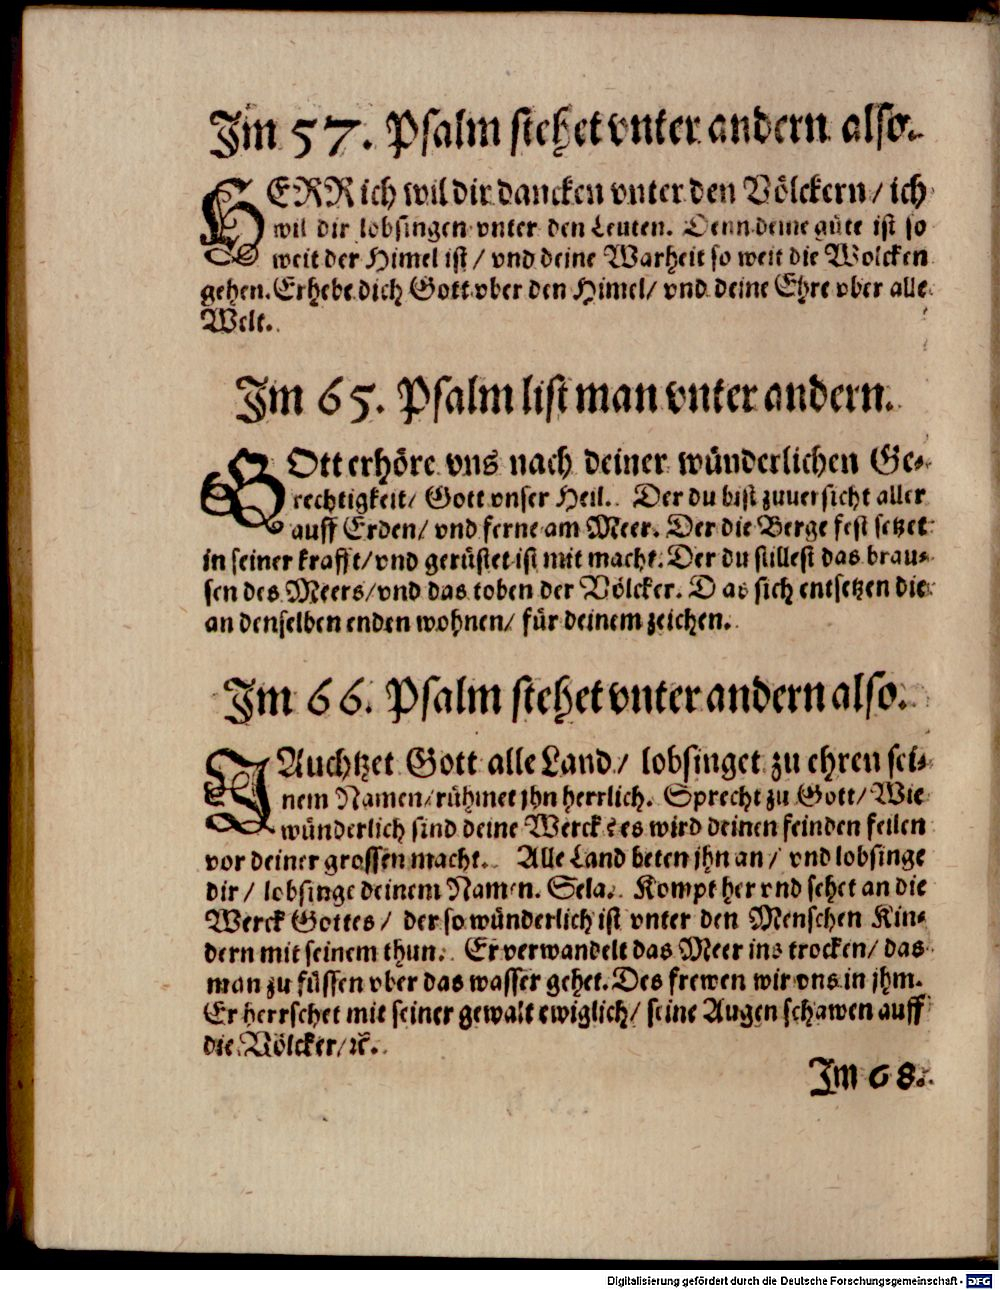 Im 57. Psalm stehet vnter andern also.
HERR ich wil dir dancken vnter den Völckern / ich
wil dir lobsingen vnter den Leuten. Denn deine güte ist so
weit der Himel ist / vnd deine Warheit so weit die Wolcken
gehen. Erhebe dich Gott vber den Himel / vnd deine Ehre vber alle
Welt.
Im 65. Psalm list man vnter andern.
GOtt erhöre vns nach deiner wünderlichen Ge-
rechtigkeit / Gott vnser Heil. Der du bist zuuersicht aller
auff Erden / vnd ferne am Meer. Der die Berge fest setzet
in seiner krafft / vnd gerüstet ist mit macht. Der du stillest das brau-
sen des Meers / vnd das toben der Völcker. Das sich entsetzen die
an denselben enden wohnen / für deinem zeichen.
Im 66. Psalm stehet vnter andern also.
JAuchtzet Gott alle Land / lobsinget zu ehren sei-
nem Namen / rühmet jhn herrlich. Sprecht zu Gott / Wie
wünderlich sind deine Werck? es wird deinen feinden feilen
vor deiner grossen macht. Alle Land beten jhn an / vnd lobsinge
dir / lobsinge deinem Namen. Sela. Kompt her vnd sehet an die
Werck Gottes / der so wünderlich ist vnter den Menschen Kin-
dern mit seinem thun. Er verwandelt das Meer ins trocken / das
man zu füssen vber das wasser gehet. Des frewen wir vns in jhm.
Er herrschet mit seiner gewalt ewiglich / seine Augen schawen auff
die Völcker / ꝛc.
Im 68.
Digitalisierung gefördert durch die Deutsche Forschungsgemeinschaft - DFG